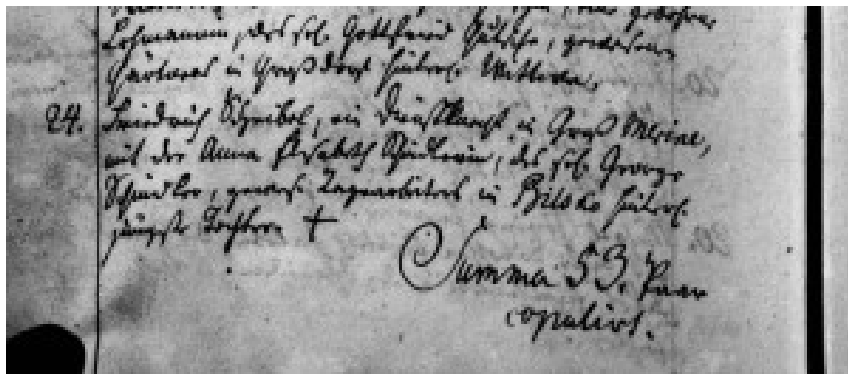 gebohrne
Lohmannin, des sel. Gottfried Gütsche, gewesenen
Gärtners in Großdorf hinterl. Wittwe.
24. Friedrich Scheibel, ein Dienstknecht in Groß
mit der Anna Elisabeth Schindlerin, des sel. George
Schindler, gewes. Tagearbeiters in Bilsko hinterl.
jüngste Tochter. +
Summa 53. Paar
copulirt.